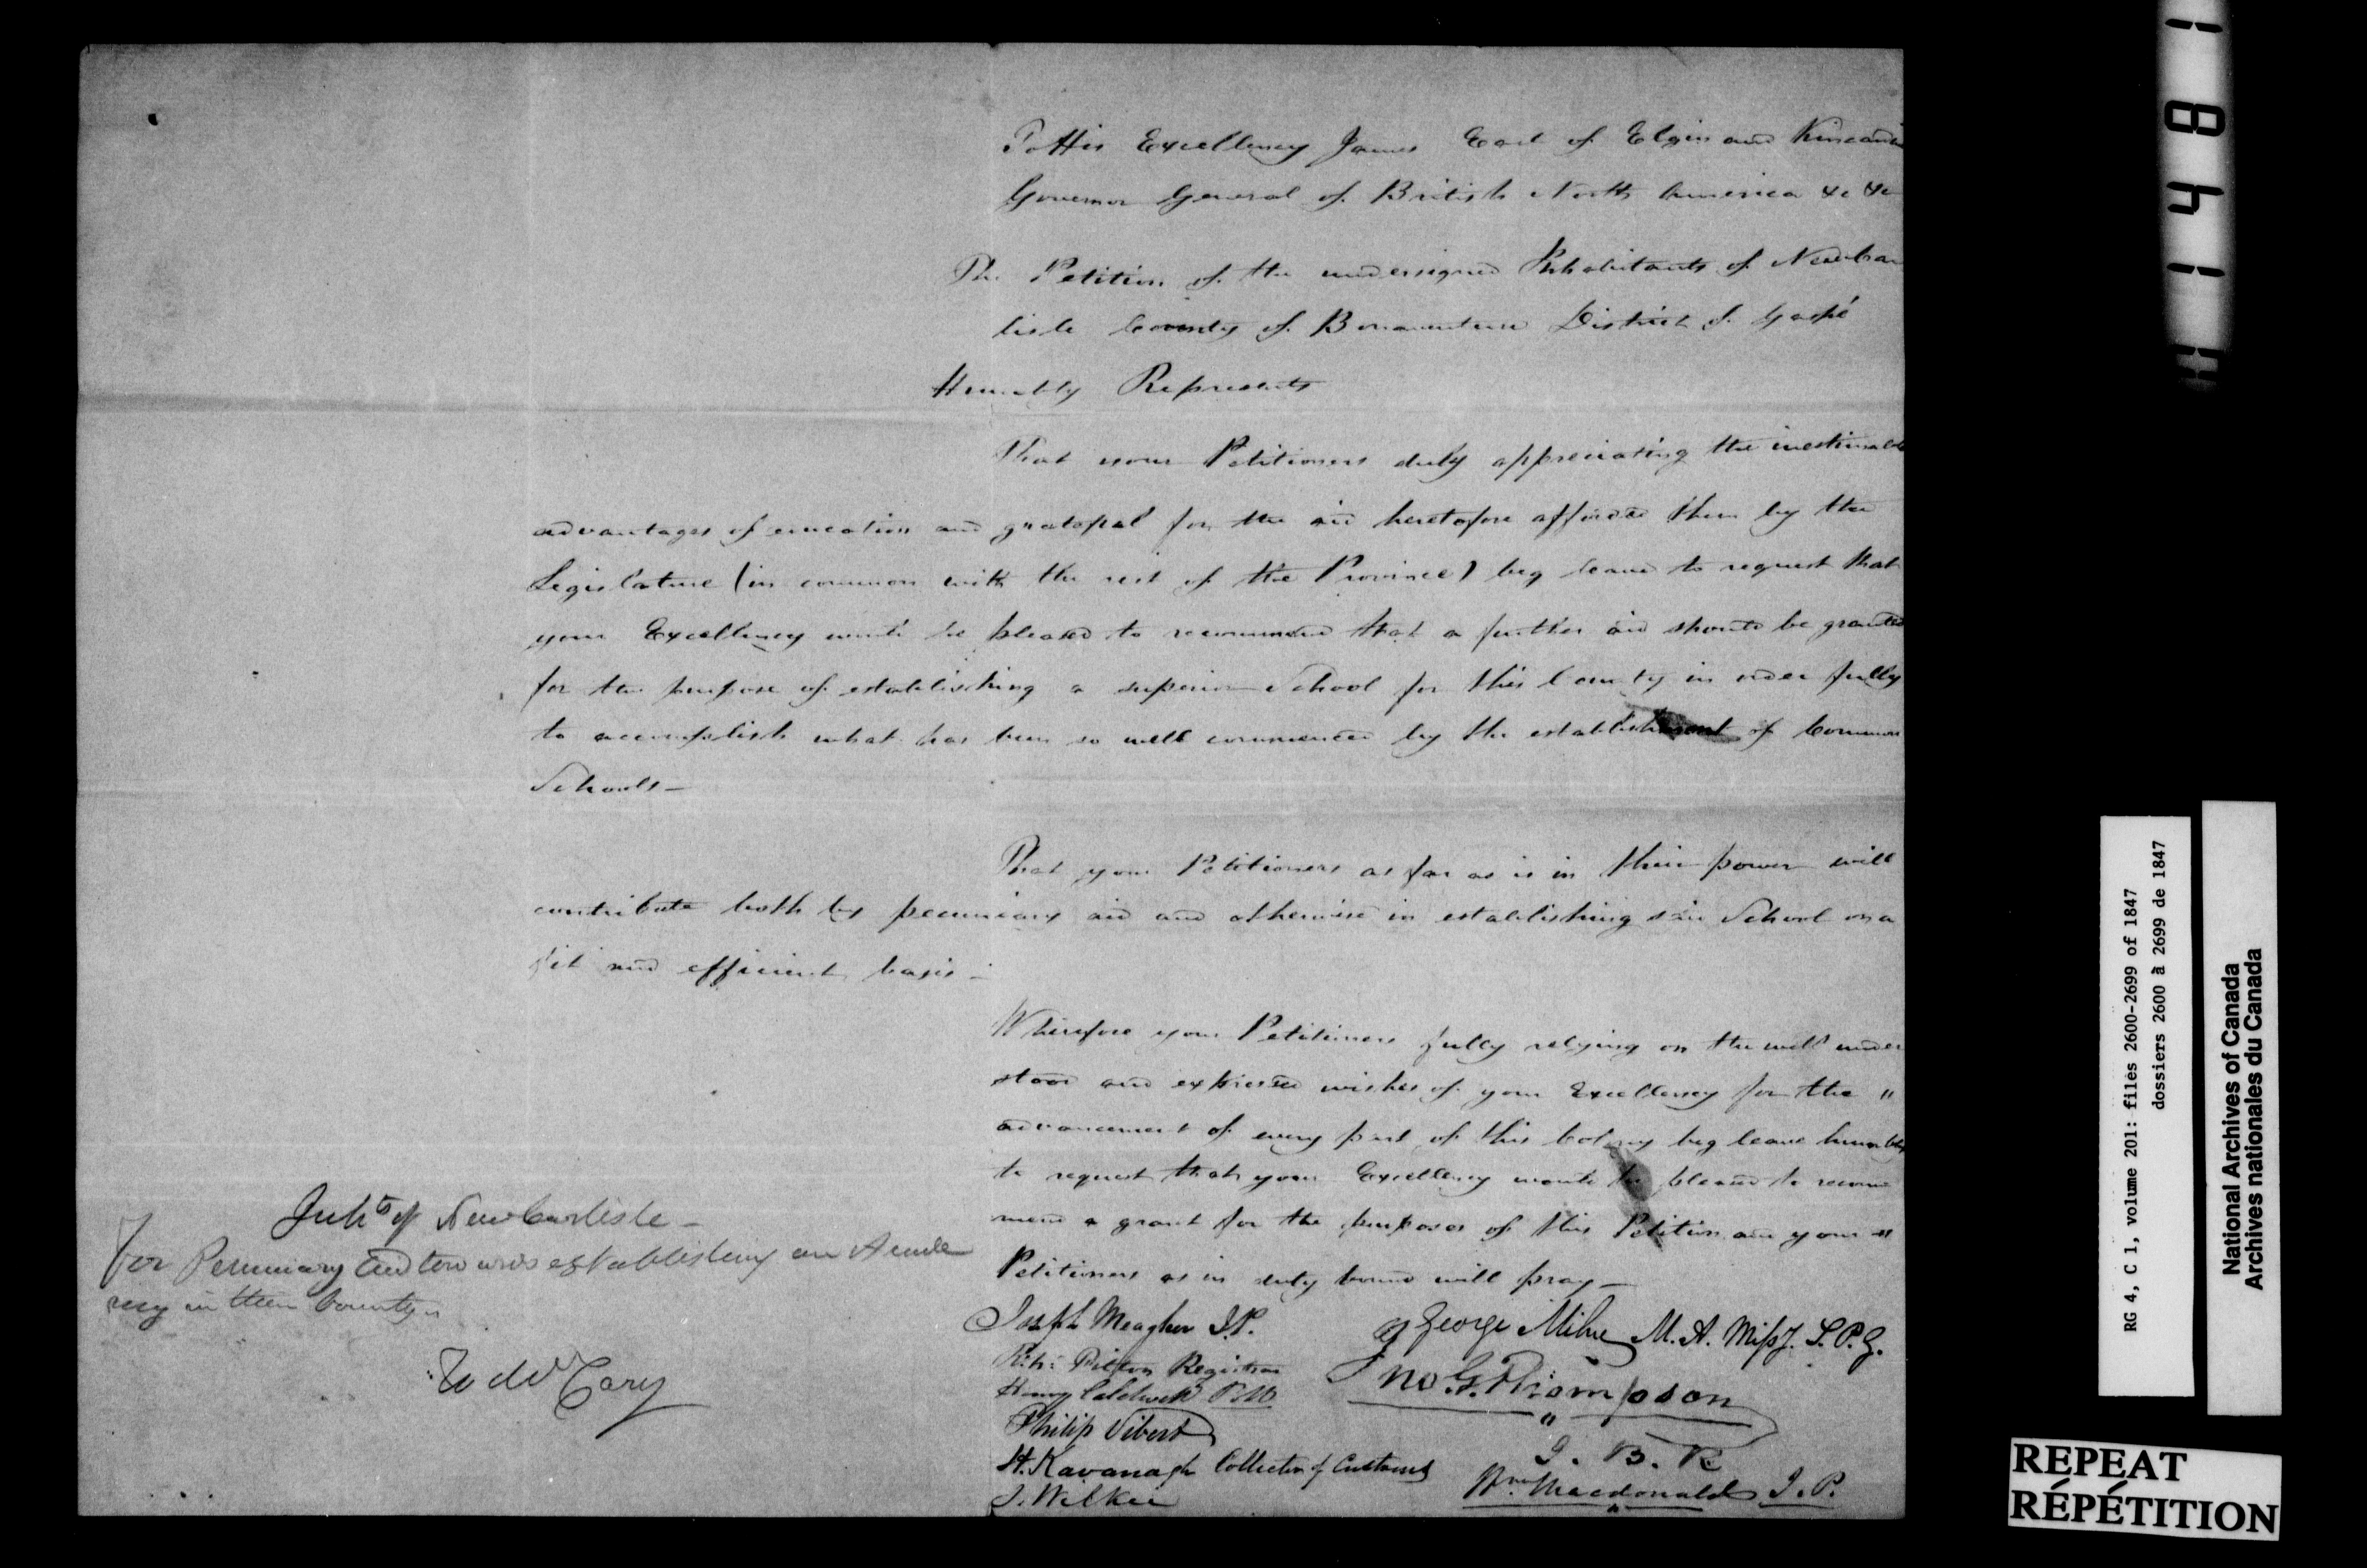 To His Excellency James Earl of Elgin and Kincardin
Governor General of British North America &c &c
The Petition of the undersigned Inhabitants of New Car
lisle County of Bonaventure District of Gaspé
Humbly Represents
That your Petitioners duly appreciating the inestimable
advantages of education and grateful for the aid heretofore afforded them by the
Legislature (in common with the rest of the Province) beg leave to request that
your Excellency would be pleased to recommend that a further aid should be granted
for the purpose of establishing a superior School for this County in order fully
to accomplish what has been so well commenced by the establishment of Common
Schools—
That your Petitioners as far as is in their power will
contribute both by pecuniary aid and otherwise in establishing said School on a
fit and efficient basis—
Wherefore your Petitioners fully relying on the well under
stood and expressed wishes of your Excellency for the "
advancement of every part of this Colony beg leave humbly
to request that your Excellency would be pleased to recom
mend a grant for the purposes of this Petition and your "
Petitioners as in duty bound will pray—
Joseph Meagher J.P.
George Milne M.A. Missy. S.P.G.
Pilton Registrar
Jno. G. Thompson
"
Henry Caldwell
Philip Vibert
J. B. R
H. Kavanagh Collector of Customs
Wm. Macdonald J.P.
J. Wilkie
Inhts of New Carlisle—
For Pecuniary Aid towards establishing an Acade
my in their County
Cary
1 8 4 1
RG 4, C 1, volume 201: files 2600-2699 of 1847
dossiers 2600 à 2699 de 1847
National Archives of Canada
Archives nationales du Canada
REPEAT
RÉPÉTITION